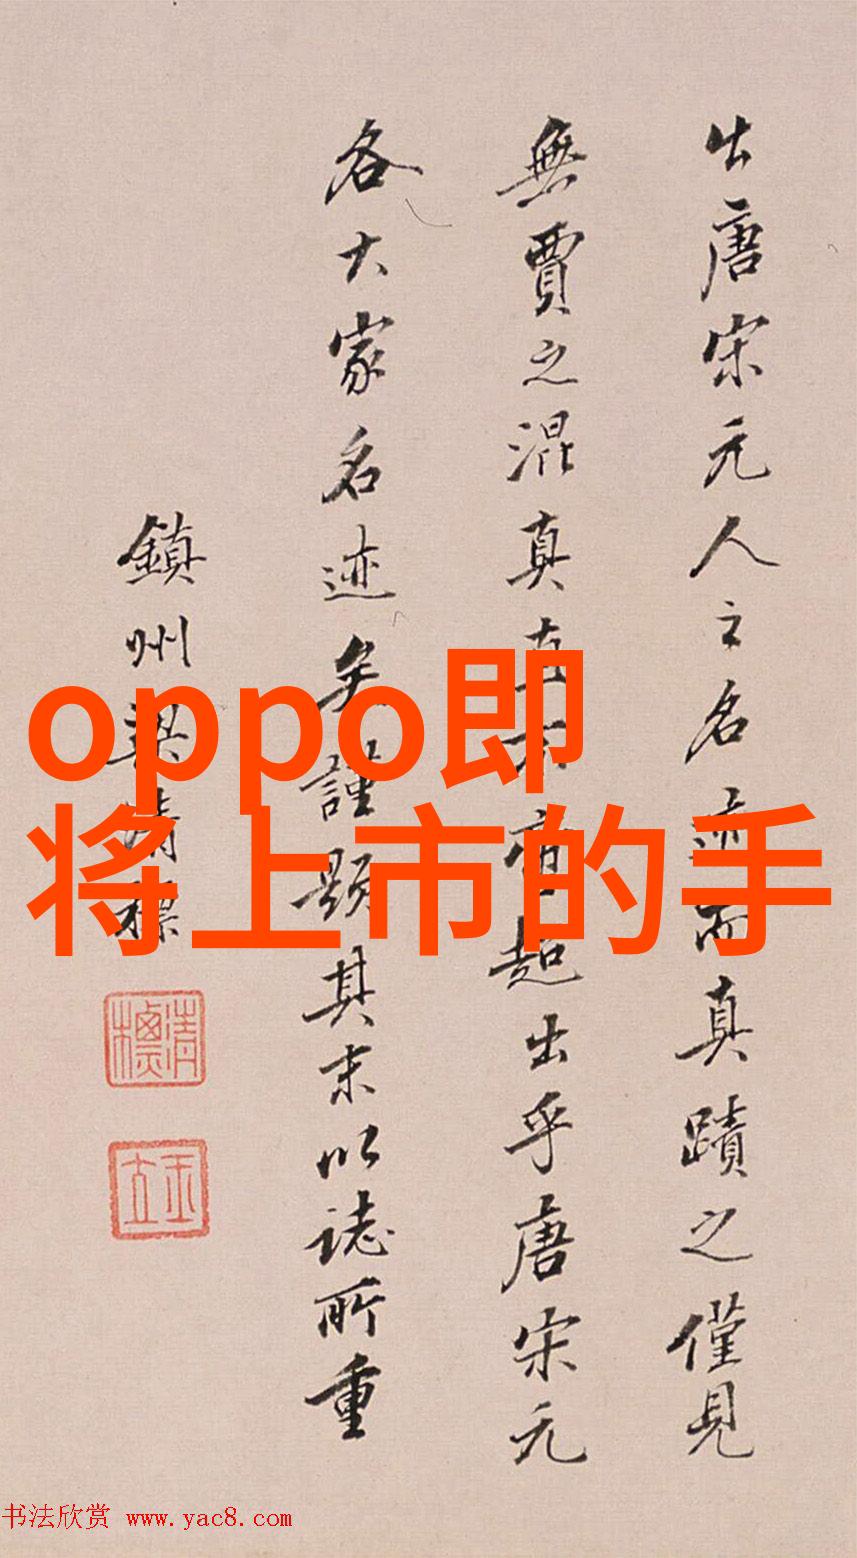 出唐宋元人之名迹而真蹟之僅見
無賈之混真直不啻超出乎唐宋元
各大家名迹矣謹題其末以誌所重
鎮州梁清標
清標
oppo即
将上市的手
书法欣赏 www.yac8.com